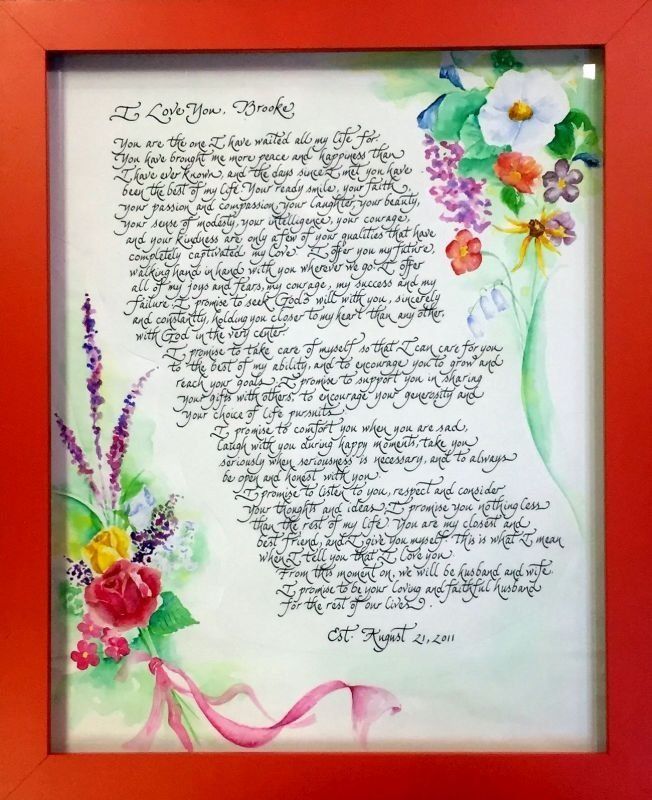 I Love You, Brooke
You are the one I have waited all my life for.
You have brought me more peace and happiness than
I have ever known, and the days since I met you have
been the best of my life. Your ready smile, your faith,
your passion and compassion, your laughter, your beauty,
your sense of modesty, your intelligence, your courage,
and your kindness are only a few of your qualities that have
completely captivated my love. I offer you my future,
walking hand in hand with you wherever we go. I offer
all of my joys and fears, my courage, my success and my
failure. I promise to seek God's will with you, sincerely
and constantly, holding you closer to my heart than any other,
with God in the very center.
I promise to take care of myself so that I can care for you
to the best of my ability, and to encourage you to grow and
reach your goals. I promise to support you in sharing
your gifts with others, to encourage your generosity and
your choice of life pursuits.
I promise to comfort you when you are sad,
laugh with you during happy moments, take you
seriously when seriousness is necessary, and to always
be open and honest with you.
I promise to listen to you, respect and consider
your thoughts and ideas. I promise you nothing less
than the rest of my life. You are my closest and
best friend, and I give you myself. This is what I mean
when I tell you that I love you.
From this moment on, we will be husband and wife.
I promise to be your loving and faithful husband
for the rest of our lives.
Est. August 21, 2011